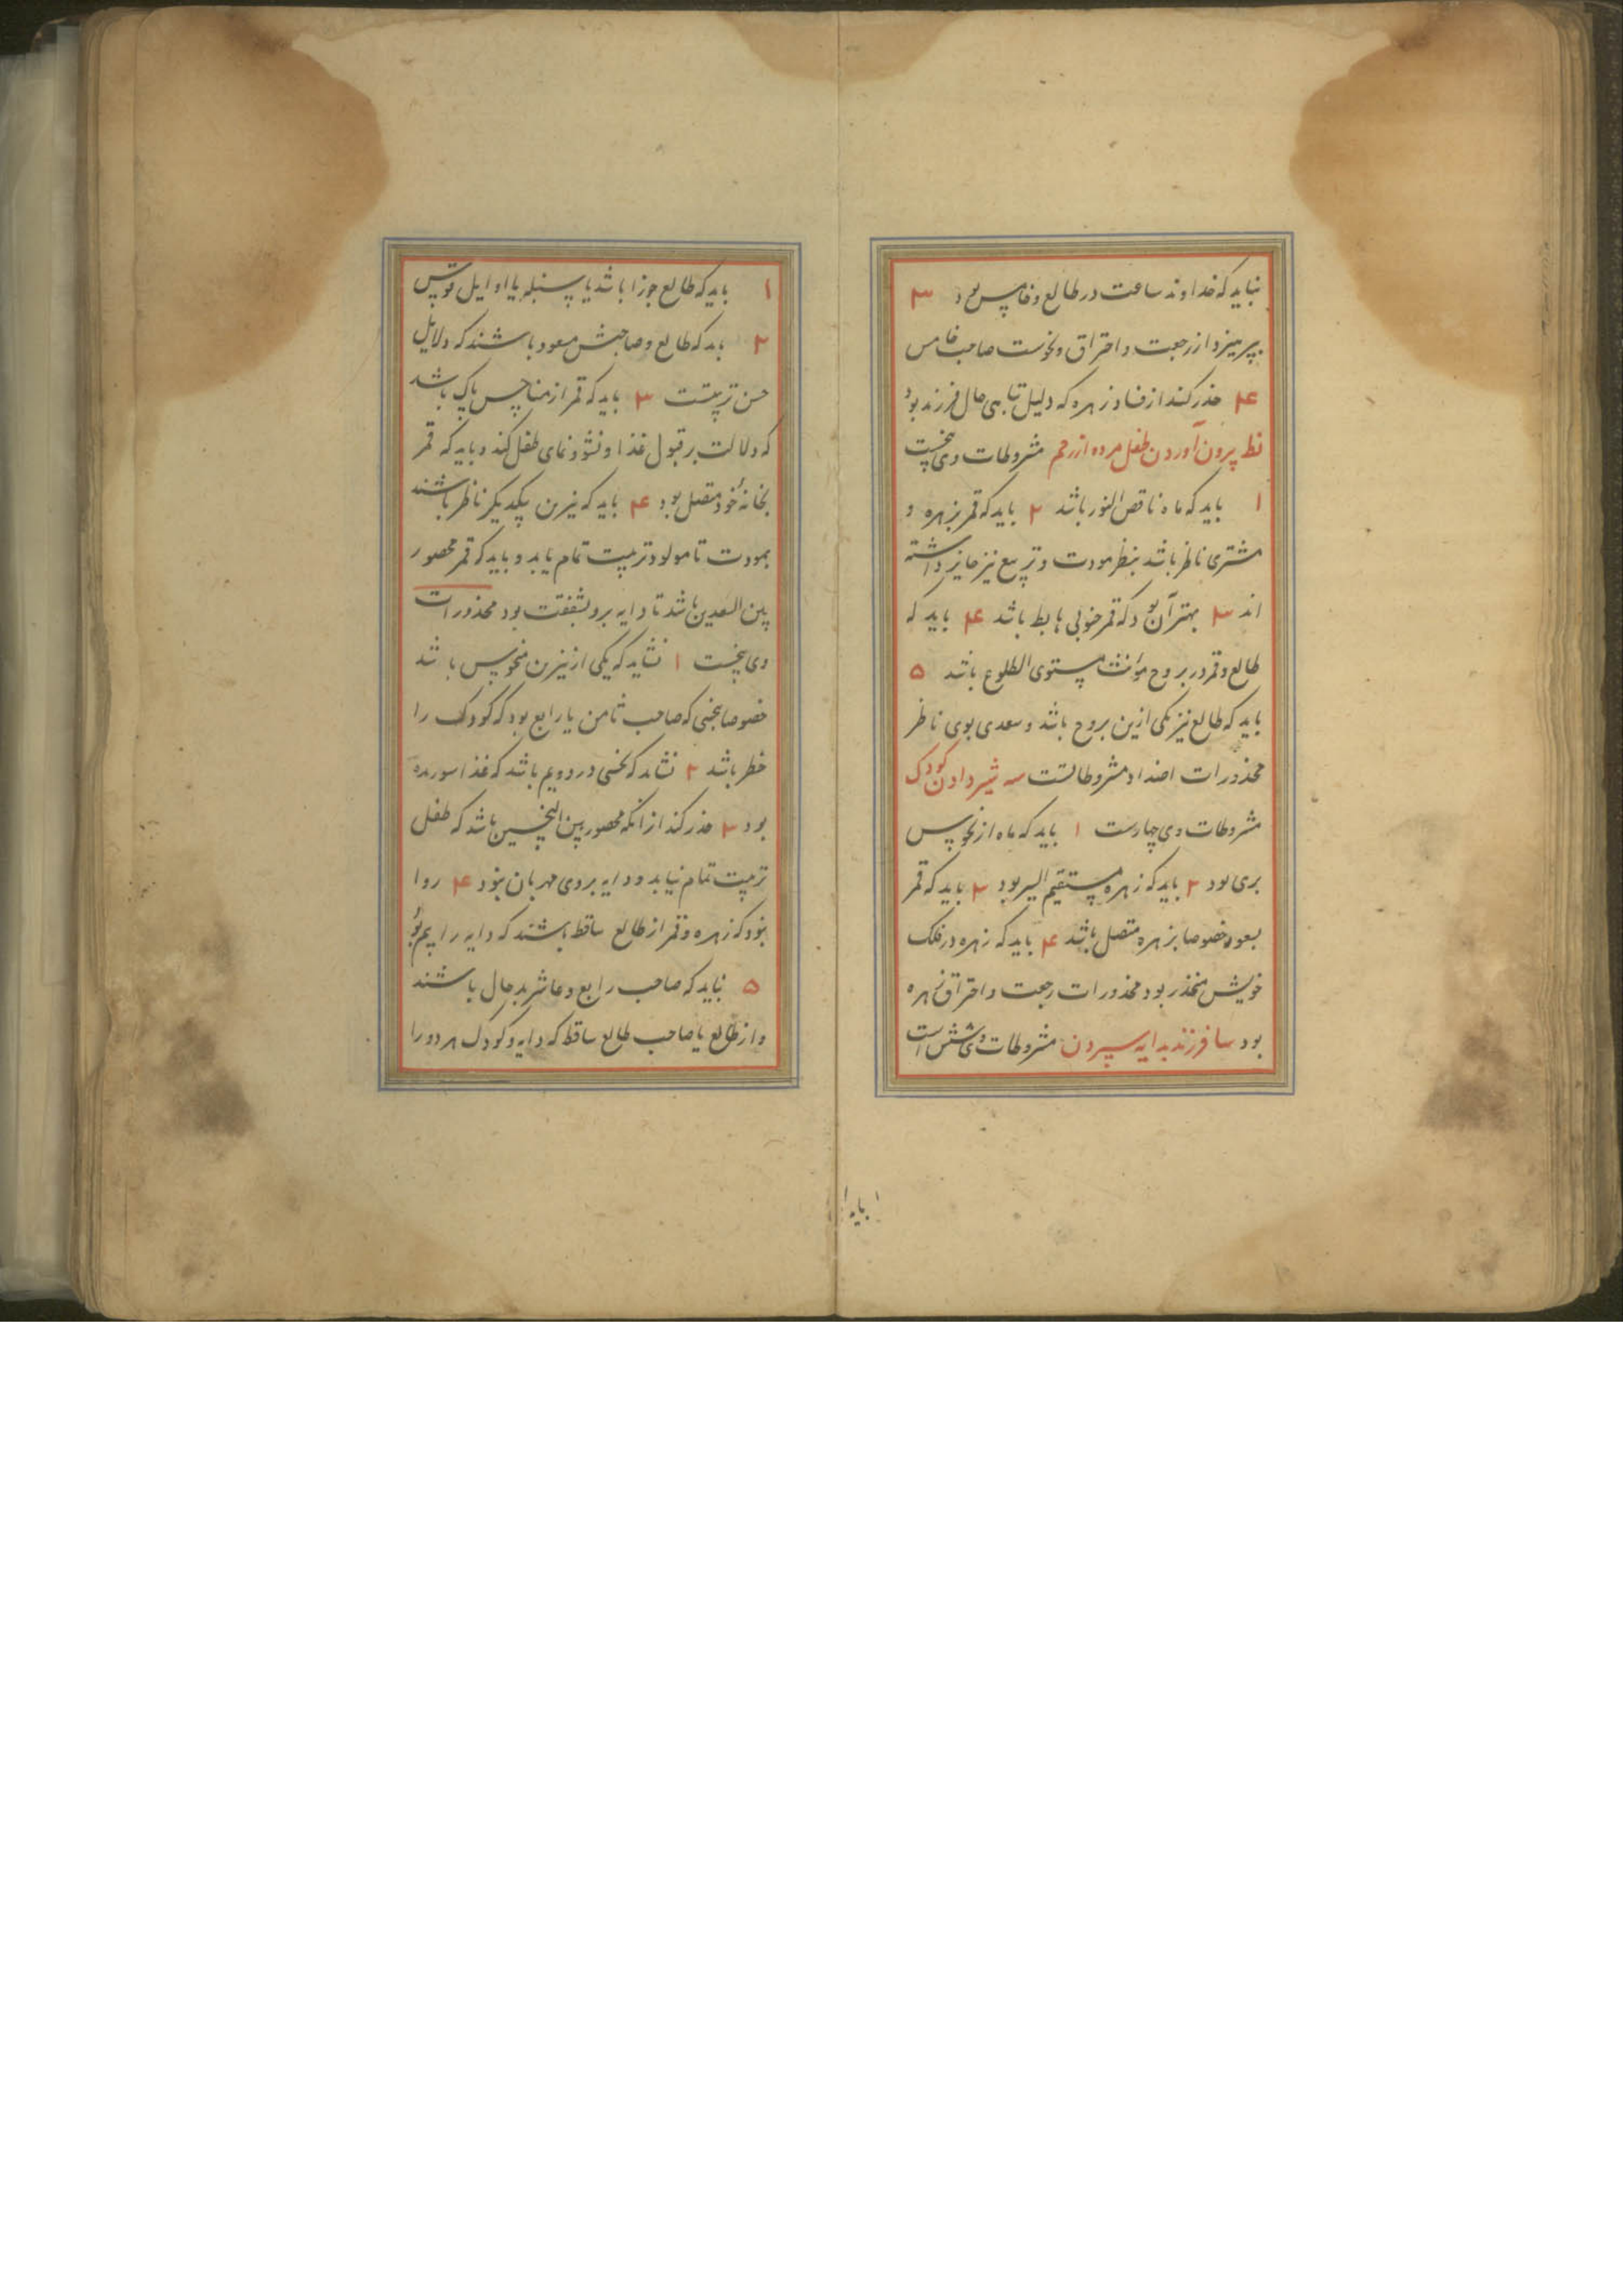 نباید که خداوند ساعت در طالع و خامس بود ۳
بپرهیزد از رجعت و احتراق و نحوست صاحب خامس
۴ حذر کند از فساد زهره که دلیل تباهی حال فرزند بود
نط بیرون آوردن طفل مرده از رحم مشروطات وی پنجست
۱ باید که ماه ناقص النور باشد ۲ باید که قمر بزهره و
مشتری ناظر باشد بنظر مودت و تربیع نیز جایز داشته
اند ۳ بهتر آن بود که قمر جنوبی هابط باشد ۴ باید که
طالع و قمر در بروج مؤنث مستوی الطلوع باشد ۵
باید که طالع نیز یکی ازین بروج باشد و سعدی بوی ناظر
محذورات اضداد مشروطاتست سه شیر دادن کودک
مشروطات وی چهارست ۱ باید که ماه از نحوس
بری بود ۲ باید که زهره مستقیم السیر بود ۳ باید که قمر
بسعود خصوصا بزهره متصل باشد ۴ باید که زهره در فلک
خویش منحدر بود محذورات رجعت و احتراق زهره
بود سا فرزند بدایه سپردن مشروطات وی شش است
باید
۱ باید که طالع جوزا باشد یا سنبله یا اوایل قوس
۲ باید که طالع و صاحبش مسعود باشند که دلایل
حسن تربیتست ۳ باید که قمر از مناحس پاک باشد
که دلالت بر قبول غذا و نشو و نمای طفل کند و باید که قمر
بخانهٔ خود متصل بود ۴ باید که نیرین بیکدیگر ناظر باشند
بمودت تا مولود تربیت تمام یابد و باید که قمر محصور
بین السعدین باشد تا دایه برو بشفقت بود محذورات
وی پنجست ۱ نشاید که یکی از نیرین منحوس باشد
خصوصا بنحسی که صاحب ثامن یا رابع بود که کودک را
خطر باشد ۲ نشاید که نحسی در دویم باشد که غذا
بود ۳ حذر کند از انکه محصور بین النحسین باشد که طفل
تربیت تمام نیابد و دایه بر وی مهربان نبود ۴ روا
نبود که زهره و قمر از طالع ساقط باشند که دایه را بیم بود
۵ نباید که صاحب رابع و عاشر بدحال باشند
و از طالع یا صاحب طالع ساقط که دایه و کودک هر دو را